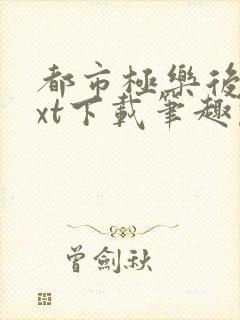 都市極樂後
xt下載筆趣
曾劍秋